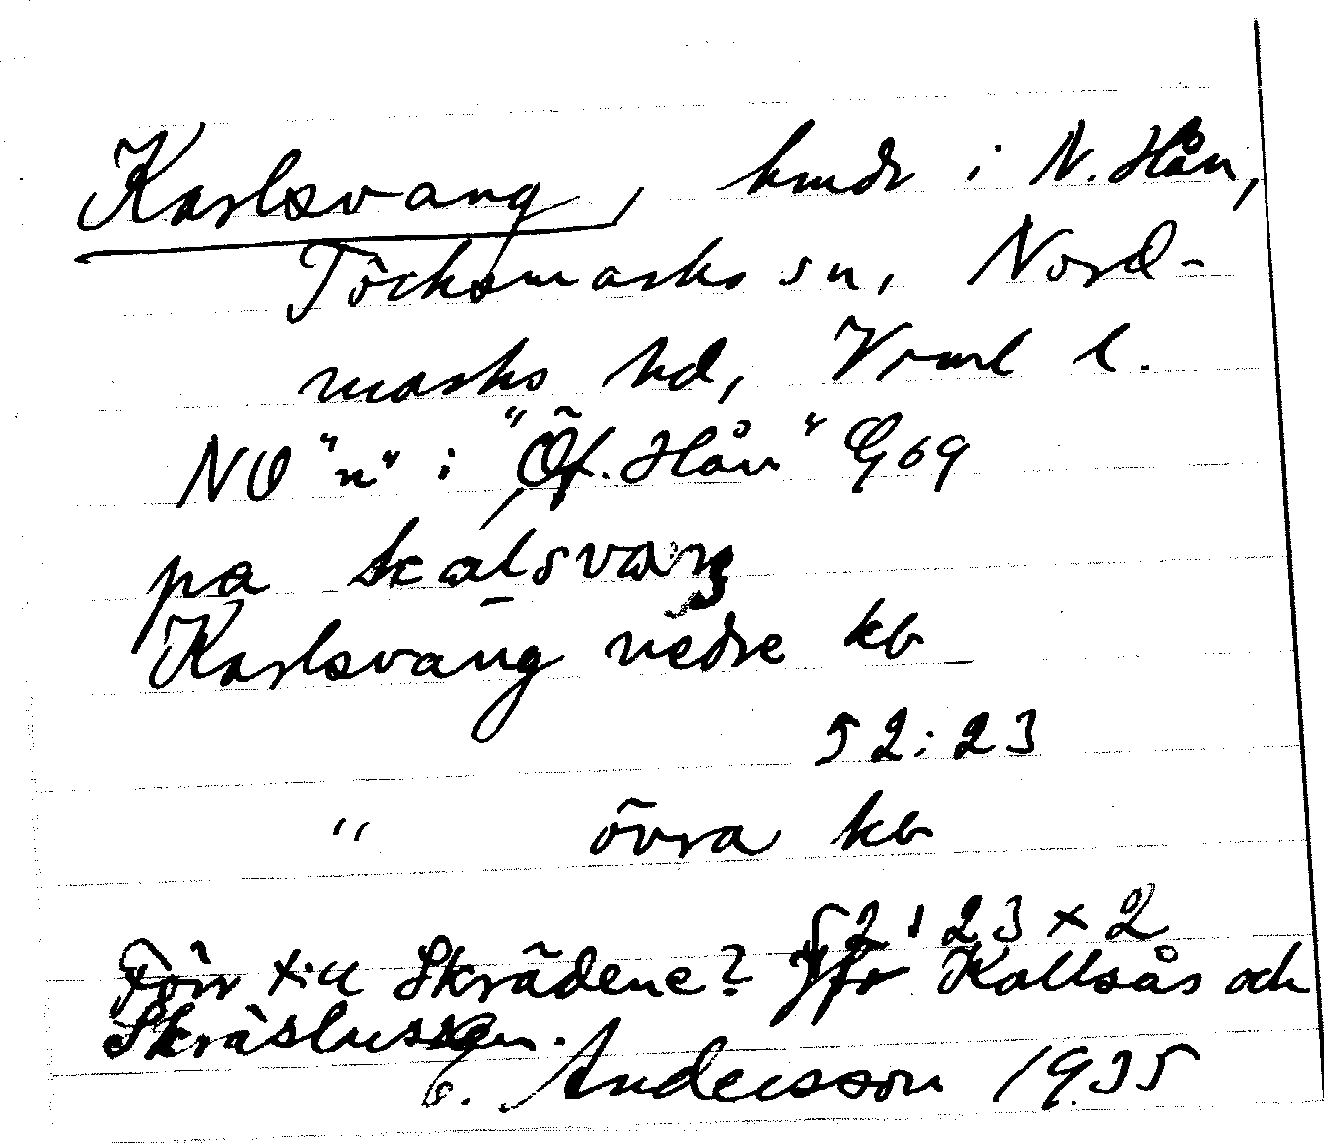 Karlsvang, hmdr i N. Hån,
Töcksmarks sn, Nord-
marks hd, Vrml l.
NO "n" i "Öf. Hån" G 69
pa kalsvaŋ
Karlsvang nedre kb
52:23
" övra kb
52:23 x 2
Förr till Skrädene? Jfr Kallsås och
Skräslussen.
G. Andersson 1935